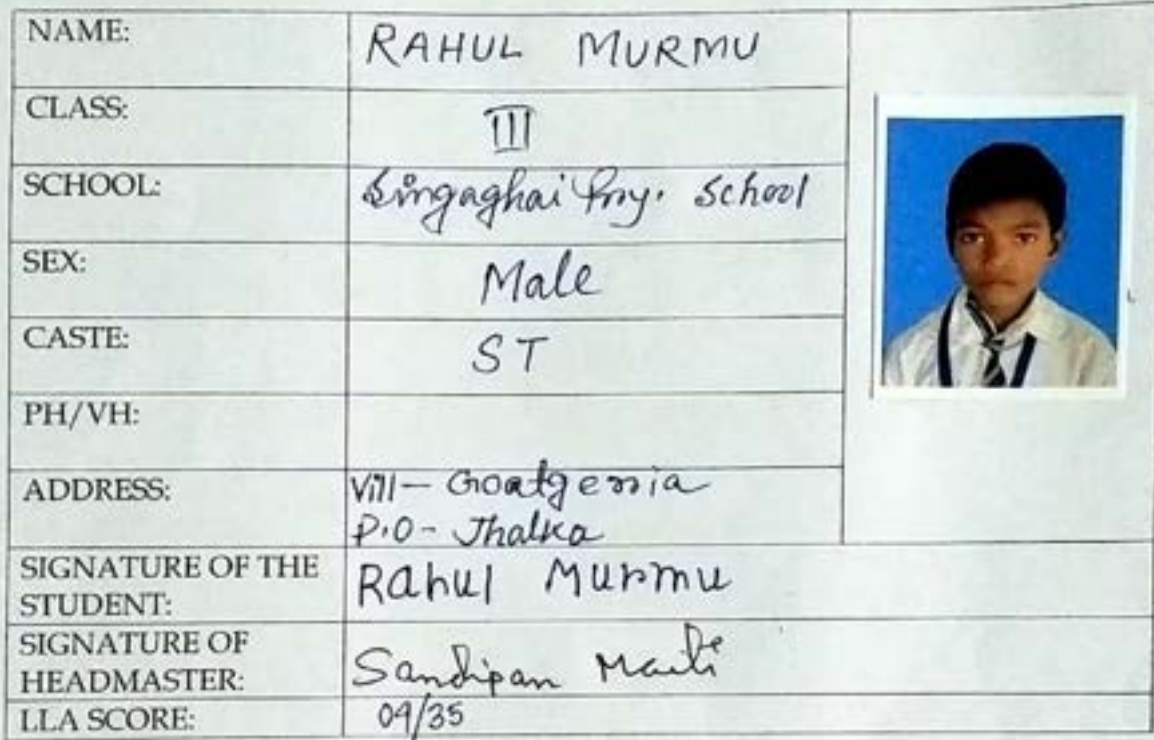 NAME: RAHUL MURMU
CLASS: III
SCHOOL: Singaghai Pry. School
SEX: Male
CASTE: ST
PH/VH:
ADDRESS: Vill- Goatgerria
P.O- Jhalka
SIGNATURE OF THE STUDENT: Rahul Murmu
SIGNATURE OF HEADMASTER: Sandipan Maiti
LLA SCORE: 09/35